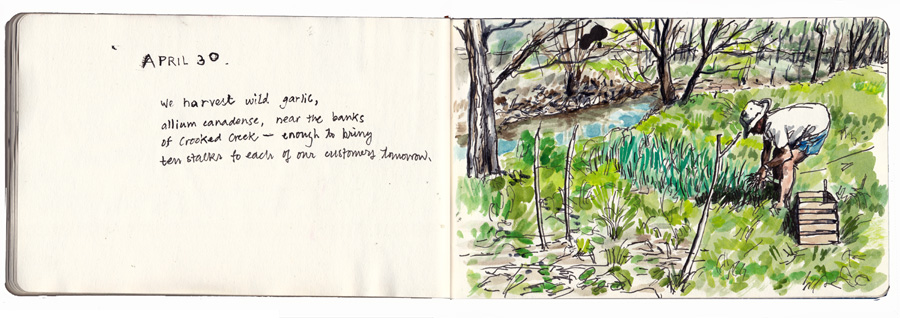 APRIL 30.
We harvest wild garlic,
allium canadense, near the banks
of Crooked Creek — enough to bring
ten stalks to each of our customers tomorrow.